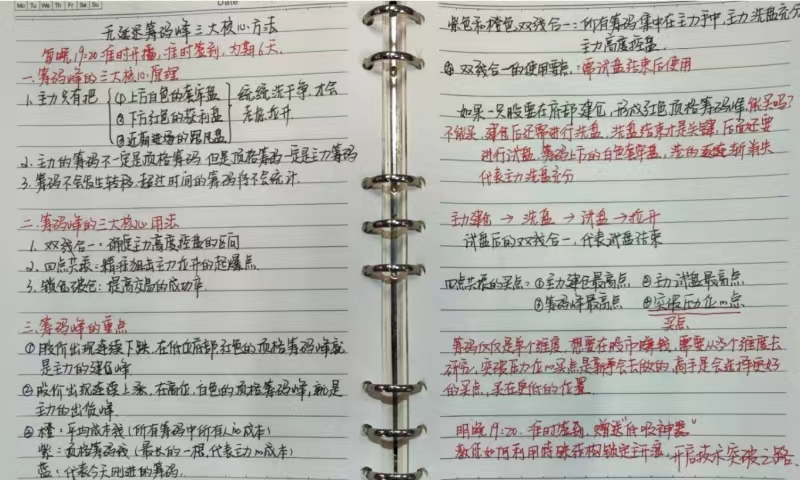 Mo Tu We Th Fr Sa Su
Date
无延迟筹码峰三大核心方法
每晚19:20准时开播,准时签到,为期6天.
一.筹码峰的三大核心原理
1.主力只有把 ①上方白色的套牢盘 统统洗干净,才会
②下方红色的获利盘 考虑拉升.
③近期进场的跟风盘
2.主力的筹码不一定是顶格筹码,但是顶格筹码一定是主力筹码
3.筹码不会发生转移,超过时间的筹码将不会统计.
二.筹码峰的三大核心用法
1.双线合一:确定主力高度控盘的区间
2.四点共振:精准狙击主力拉升的起爆点
3.锁仓破仓:提高交易的成功率
三.筹码峰的重点
①股价出现连续下跌,在低位底部,红色的顶格筹码峰就
是主力的建仓峰
②股价出现连续上涨,在高位,白色的顶格筹码峰,就是
主力的出货峰.
③橙:平均成本线(所有筹码中所有人的成本)
紫:顶格筹码线(最长的一根,代表主力的成本)
蓝:代表今天刚进的筹码.
紫色和橙色双线合一:所有筹码集中在主力手中,主力洗盘充分
主力高度控盘.
④双线合一的使用要点:需试盘结束后使用
如果一只股票在底部建仓,形成红色顶格筹码峰,能买吗?
不能是,建仓后还需进行洗盘,洗盘结束才是关键,后面还要
进行试盘,筹码上方的白色套牢盘,逐渐消失
代表主力洗盘充分
主力建仓 → 洗盘 → 试盘 → 拉升
试盘后的双线合一,代表试盘结束
四点共振的买点:①主力建仓最高点 ②主力试盘最高点
③筹码峰最高点 ④突破压力位的点
买点
筹码仅仅是单个维度,想要在股市赚钱,需要从多个维度去
研究,突破压力位的买点是新手会去做的,高手是会选择更好
的买点,买在更低的位置.
明晚19:20,准时签到,赠送"低吸神器"
教你如何利用特殊结构锁定主升浪,开启技术突破之路.